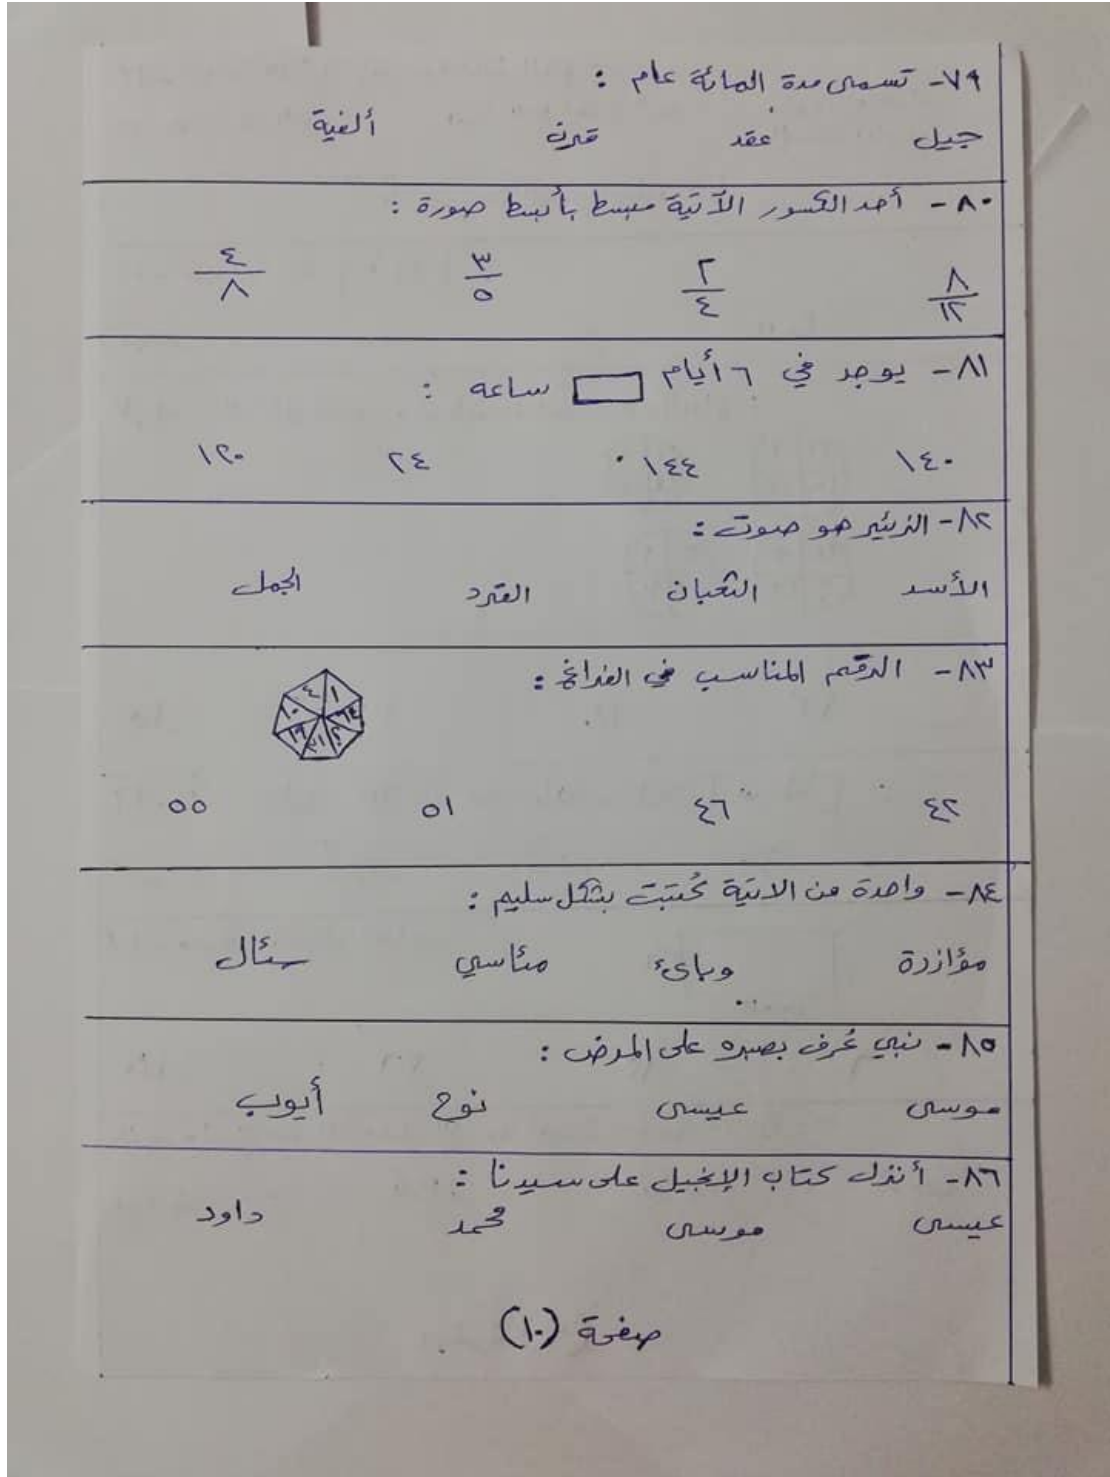 ٧٩- تسمى مدة المائة عام :
جيل عقد قرن ألفية
٨٠- أحد الكسور الآتية مبسط بأبسط صورة :
٨/١٢ ٢/٤ ٣/٥ ٤/٨
٨١- يوجد في ٦ أيام ساعه :
١٤٠ ١٤٤ ٢٤ ١٢٠
٨٢- الزئير هو صوت :
الأسد الثعبان القرد الجمل
٨٣- الرقم المناسب في الفراغ :
١ ٤ ١٠ ١٩ ٣١ ؟ ٦٤
٤٢ ٤٦ ٥١ ٥٥
٨٤- واحدة من الاتية كُتبت بشكل سليم :
مؤازرة وبائ مئاسي سئال
٨٥- نبي عُرف بصبره على المرض :
موسى عيسى نوح أيوب
٨٦- أنزل كتاب الإنجيل على سيدنا :
عيسى موسى محمد داود
صفحة (١٠)